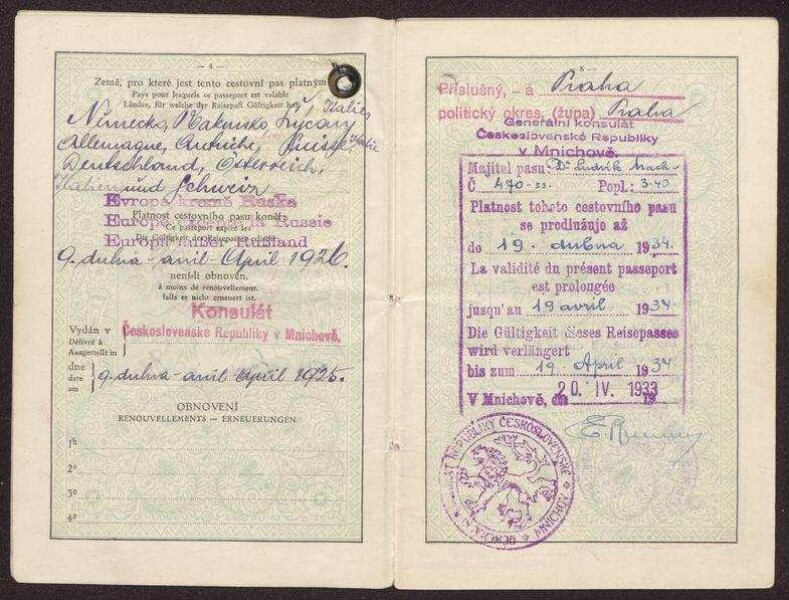 — 4 —
Země, pro které jest tento cestovní pas platným
Pays pour lesquels ce passeport est valable
Länder, für welche der Reisepaß Gültigkeit hat
Německo, Rakousko, Švýcary, Italie
Allemagne, Autriche, Suisse, Italie
Deutschland, Österreich,
Italien und Schweiz
Evropa kromě Ruska
Platnost cestovního pasu končí
Ce passeport expire le
Europe Russie
Die Gültigkeit des Reisepasses
Europa außer Rußland
9. dubna - avril - April 1926.
není-li obnoven.
à moins de renouvellement.
falls er nicht erneuert ist.
Konsulát
Československé Republiky v Mnichově.
Vydán v
Délivré à
Ausgestellt in
dne
date
am
9. dubna - avril - April 1925.
OBNOVENÍ
RENOUVELLEMENTS — ERNEUERUNGEN
1º
2º
3º
4º
Příslušný, - á Praha
politický okres, (župa) Praha
Generální konsulát
Československé Republiky
v Mnichově.
Majitel pasu Dr Ludvík
Č 470-33. Popl.: 3·40
Platnost tohoto cestovního pasu
se predlužuje až
do 19. dubna 1934.
La validité du présent passeport
est prolongée
jusqu'au 19 avril 1934.
Die Gültigkeit dieses Reisepasses
wird verlängert
bis zum 19. April 1934
V Mnichově, dne 20. IV. 1933
REPUBLIKY ČESKOSLOVENSKÉ
MNICHOV